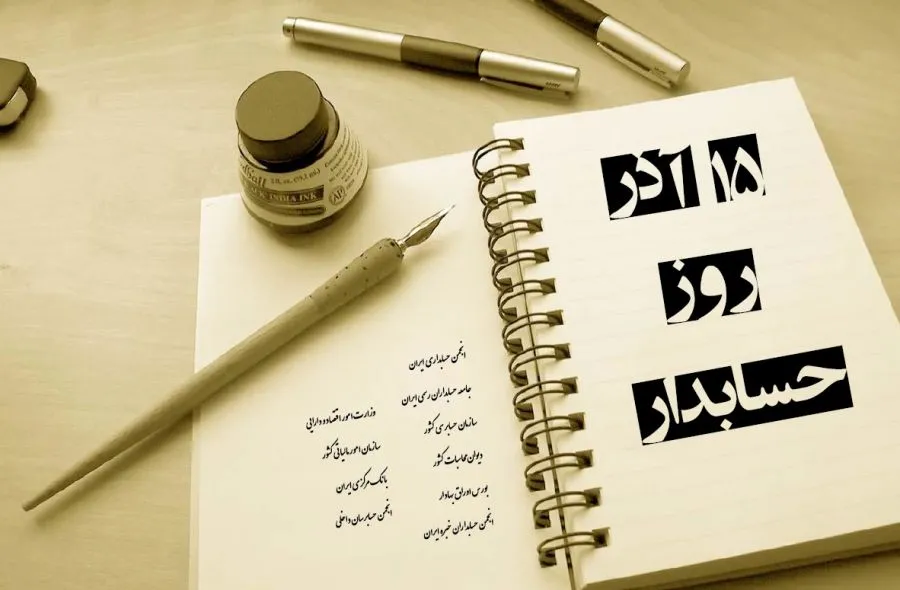 ۱۵ آذر
روز
حسابدار
انجمن حسابداری ایران
جامعه حسابداران رسمی ایران
سازمان حسابرسی کشور
دیوان محاسبات کشور
بورس اوراق بهادار
انجمن حسابداران خبره ایران
وزارت امور اقتصاد و دارایی
سازمان امور مالیاتی کشور
بانک مرکزی ایران
انجمن حسابرسان داخلی
2 fl. oz. (59.1 mL)
INDIA INK
AP